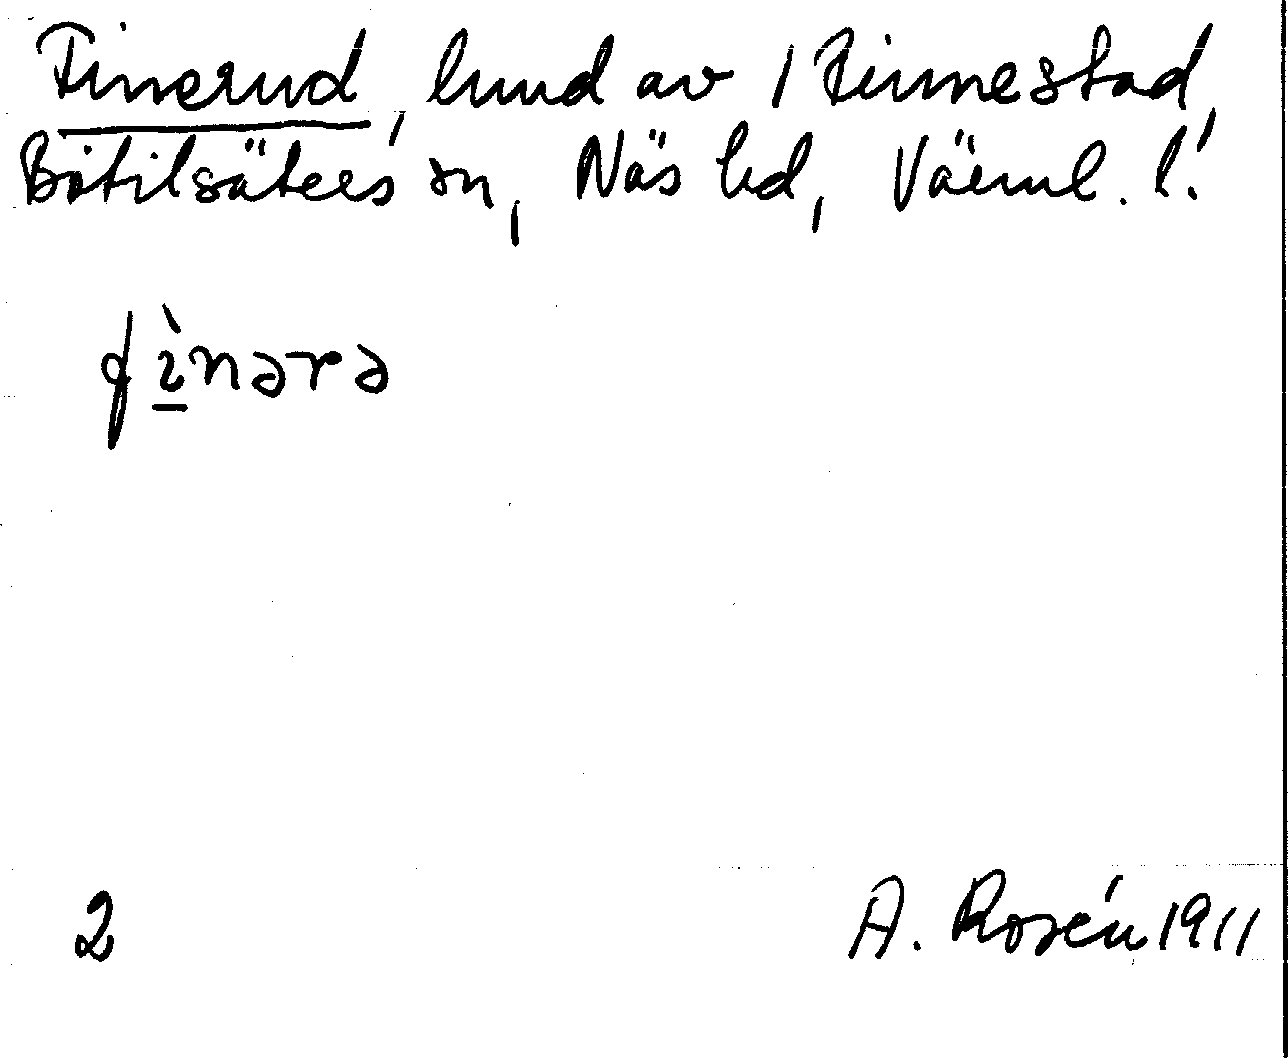 Finerud, hmd av 1 Rinnestad,
Botilsäters sn, Näs hd, Värml. l.
fìnərə
2
A. Rosén 1911